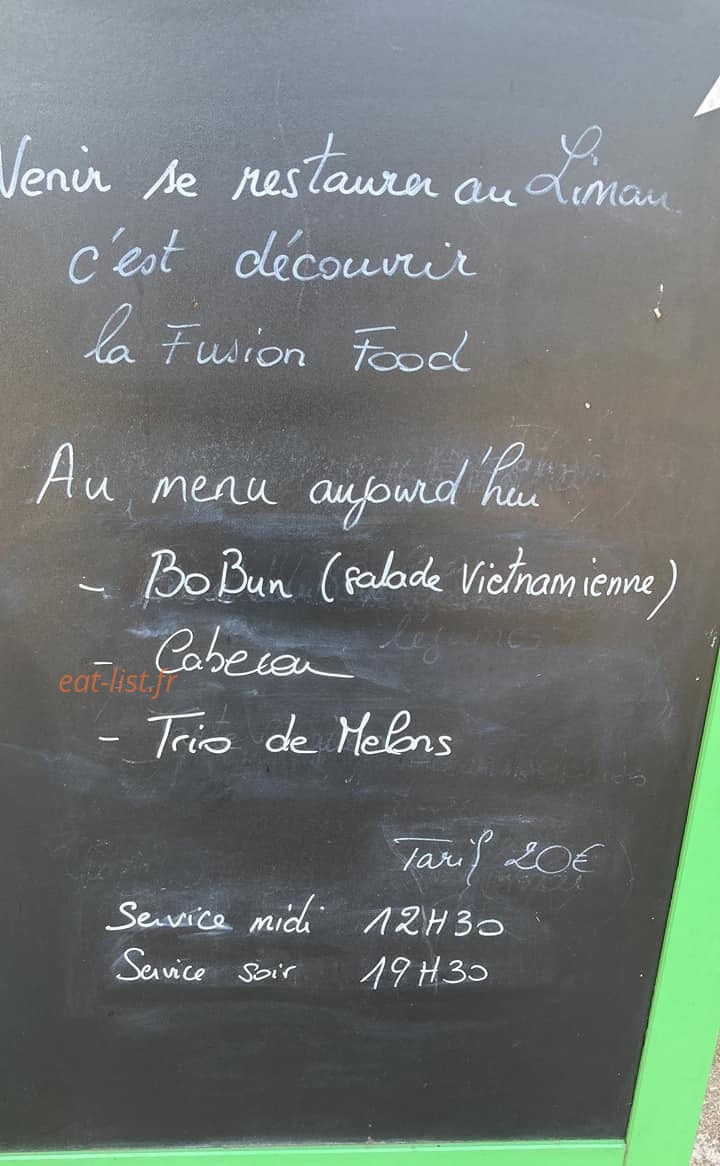 Venir se restaurer au Limau
c'est découvrir
la Fusion Food
Au menu aujourd'hui
- BoBun (salade Vietnamienne)
- Cabecou
eat-list.fr
- Trio de Melons
Tarif 20€
Service midi 12H30
Service soir 19H30